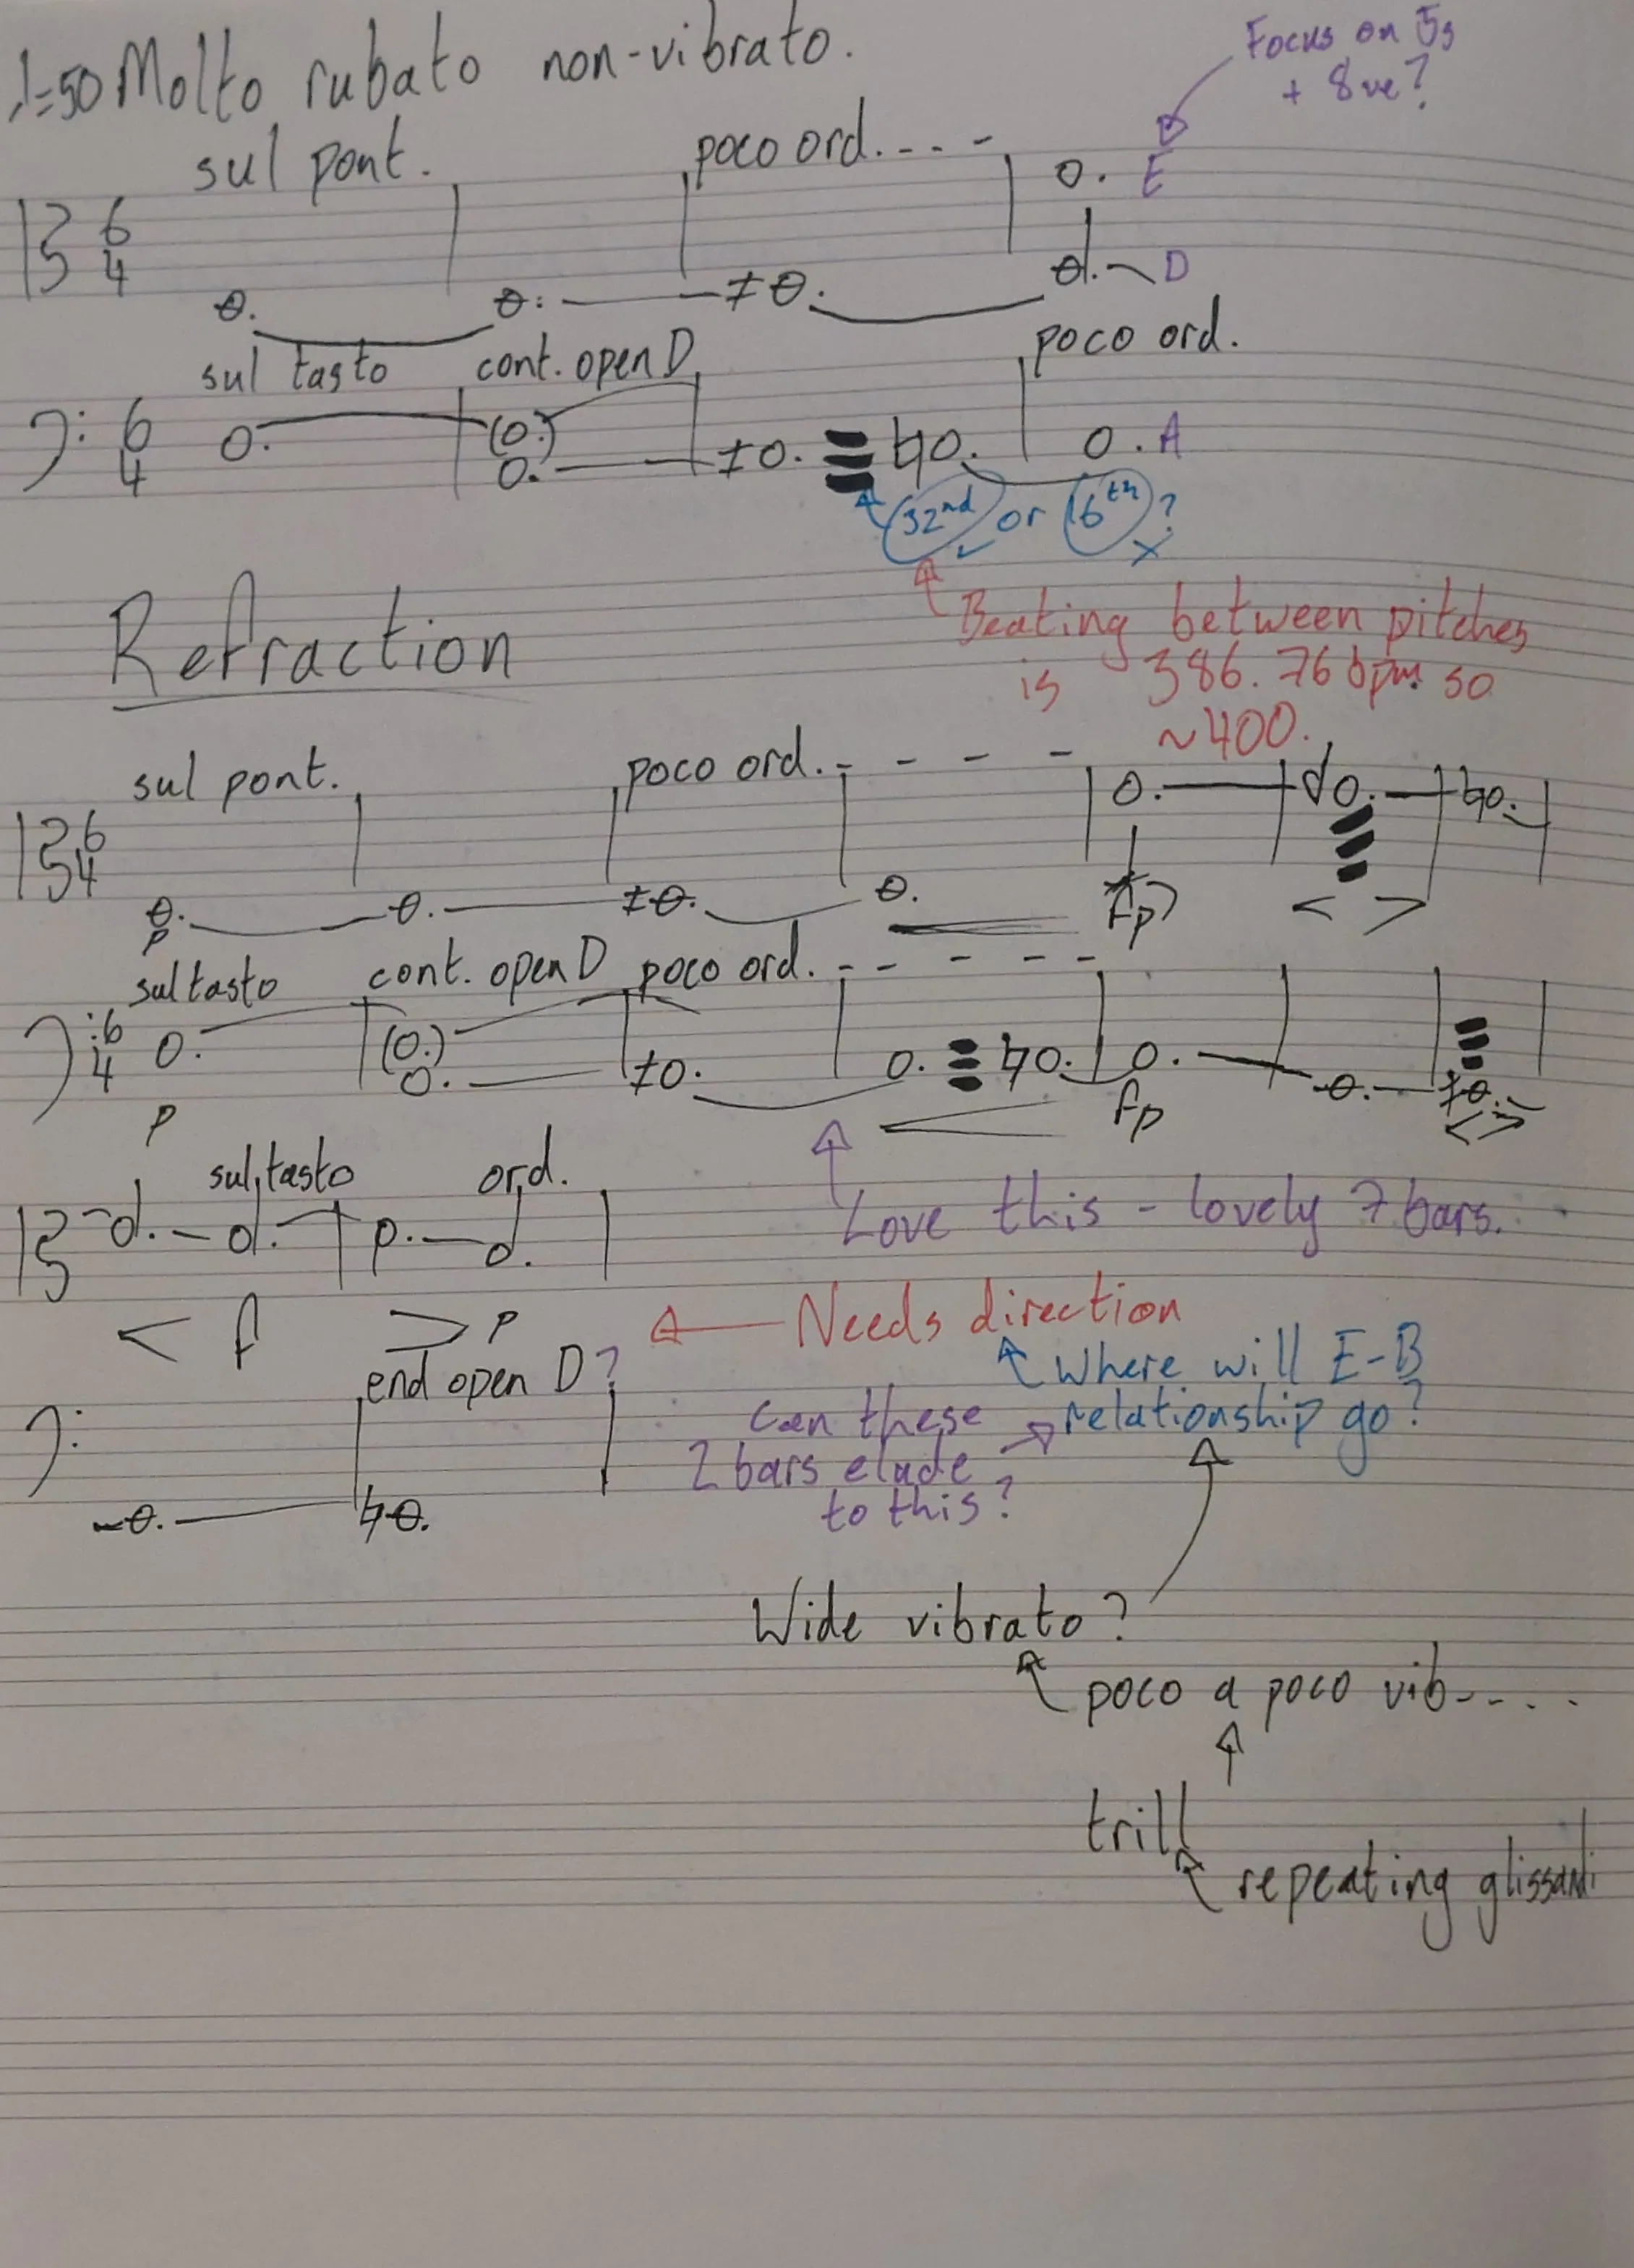 ♩=50 Molto rubato non-vibrato.
Focus on 5s
+ 8ve?
sul pont.
poco ord. . . . -
6
4
E
D
sul tasto
cont. open D
poco ord.
6
4
A
32nd or 16th?
Beating between pitches
is 386.76 bpm so
~400.
Refraction
sul pont.
poco ord. - - - -
6
4
p
fp
sul tasto
cont. open D
poco ord. - - - - -
6
4
p
fp
Love this - lovely 7 bars.
sul tasto
ord.
f
p
Needs direction
end open D?
Where will E-B
relationship go?
Can these
2 bars elude
to this?
Wide vibrato?
poco a poco vib - - . . .
trill
repeating glissandi